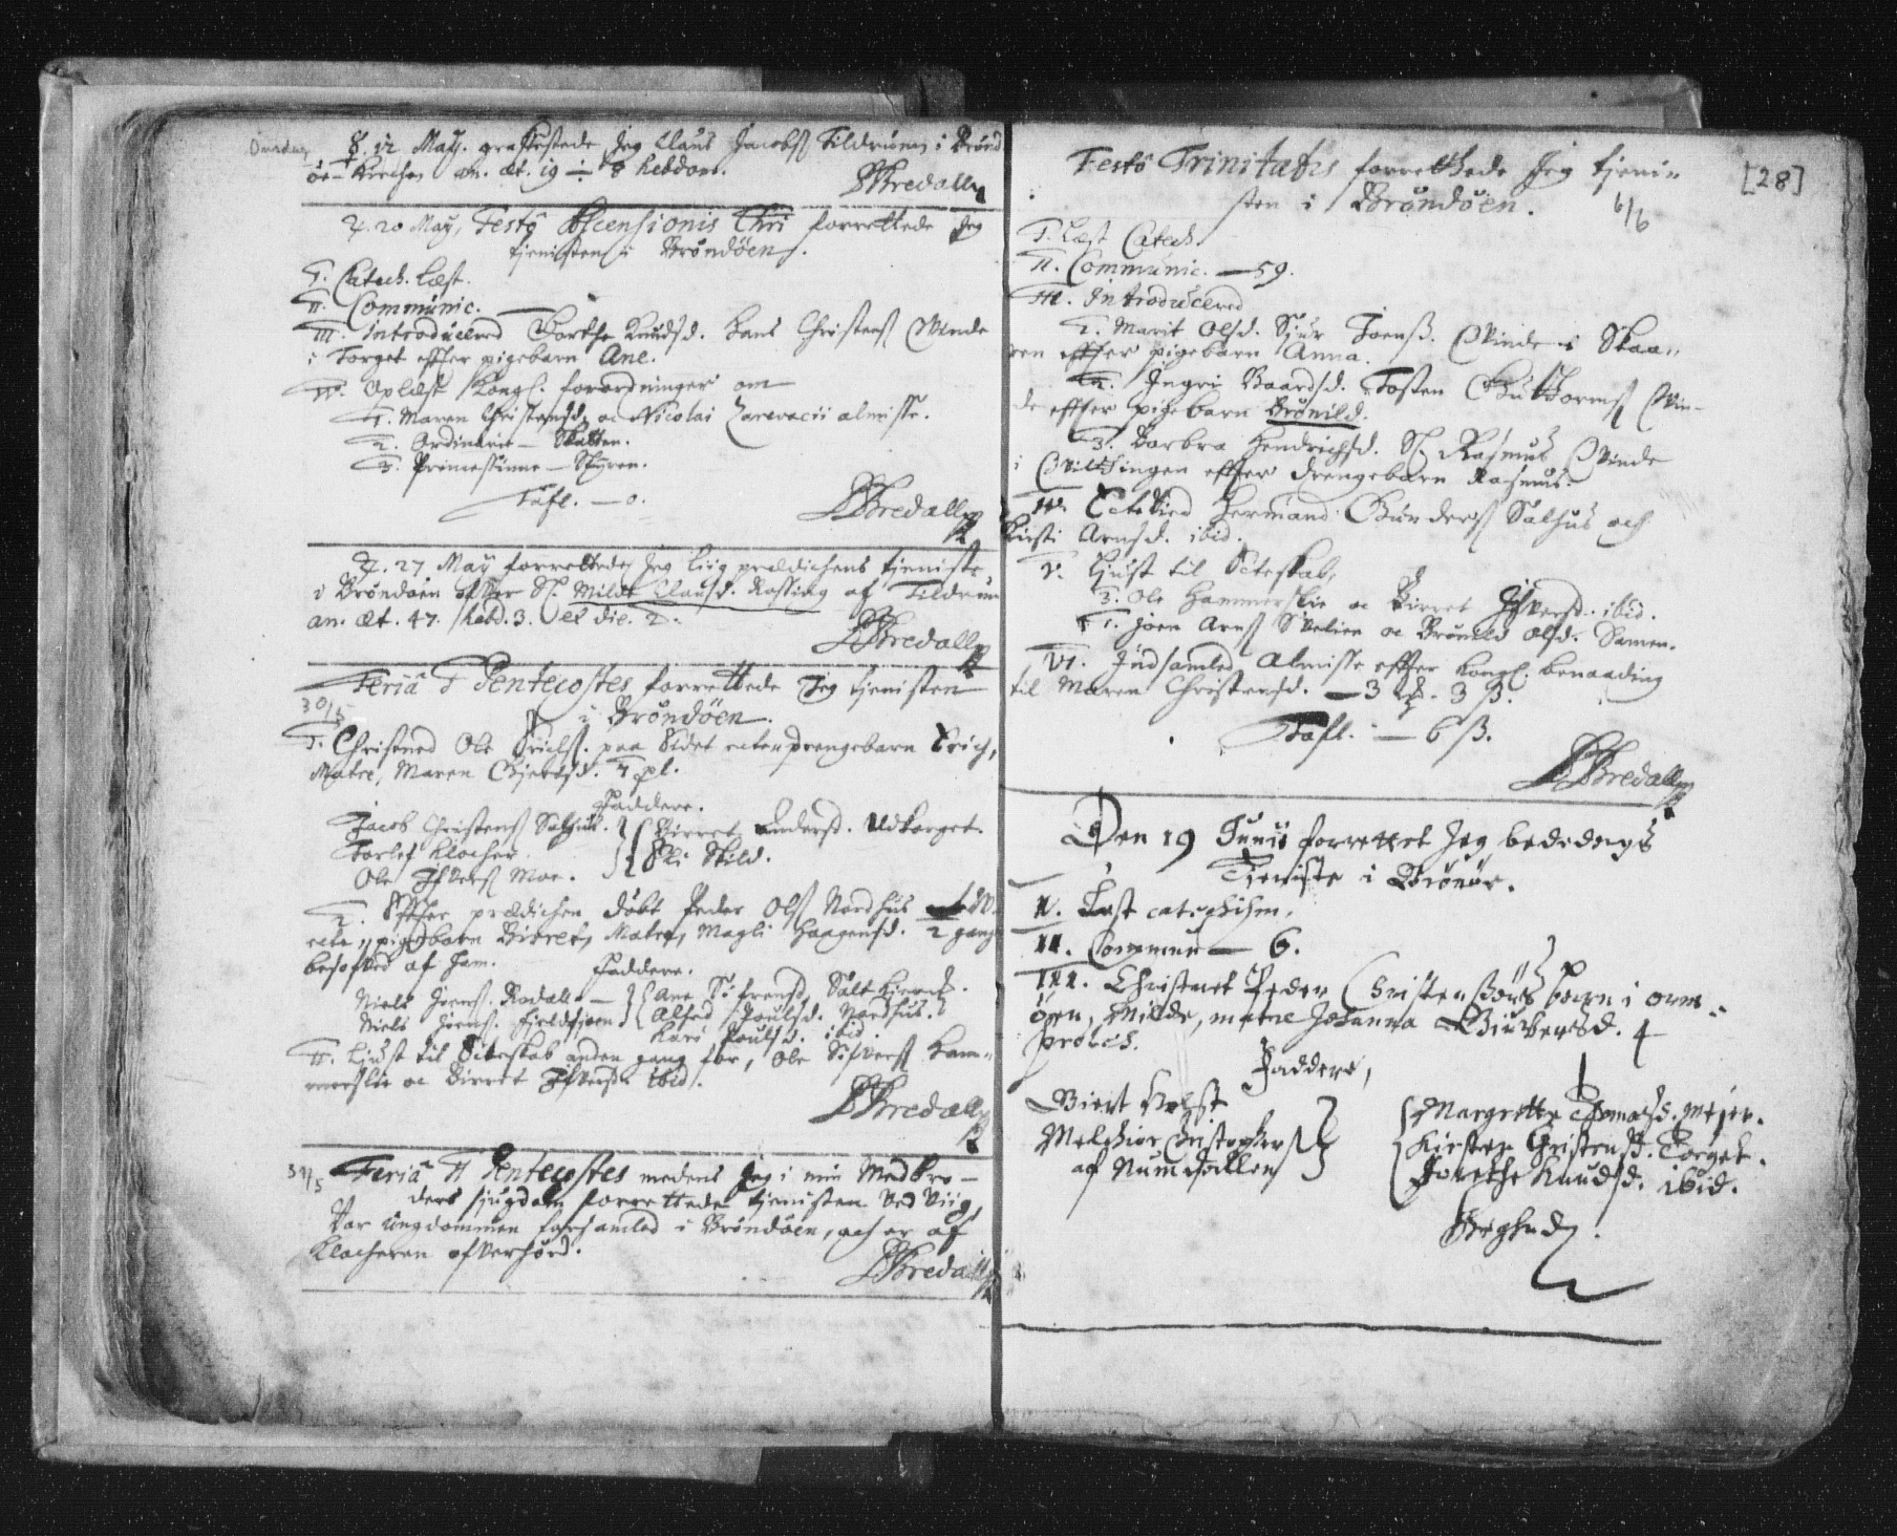 Onsdag
☿. 12 Maÿ. graffestede Jeg Claus Jacobs Tildrum i Brønd
øe-Kirchen an. æt. 19 ÷ 8 hebdom.
SBredall
♃. 20 Maÿ, Festô Ascensionis Chri forrettede Jeg
tienisten i Brøndøen.
I. Catech. læst.
II. Communic. —
III. Introducered Dorthe Knudsd. Hans Christens Qvinde
i Torget effter pigebarn Ane.
IV. Oplæst Kongl. forordninger om
1. Maren Christensd. oc Nicolai almisse.
2. Ordinarie — Skatten.
3. Princessinne — Styren.
Tafl. — 0.
SBredall
♃. 27 Maÿ forrettede Jeg Liig prædichens tieniste
i Brøndøen effter Sl. Mildt Clausd. Rossing af Tildrum
an. æt. 47. hebd. 3. et die. 2.
SBredall
Feriâ I Pentecostes forrettede Jeg tienisten
30/5
i Brøndøen.
I. Christned Ole Erichs. paa Sidet ecten drengebarn Erich,
Matre, Maren Gierdsd. 4 pl.
Faddere.
Jacob Christens Salhus.
Torlef Klocher
Ole Ifvers Moe.
Birret Andersd. Udtorget.
Eli Skild.
2. Effter prædichen døbt Peder Ols Nordhus
ecte pigebarn Birret, Matre, Magli Haagensd. 2 gang
besofved af ham.
Faddere.
Niels Joens. Rodall —
Niels Joens. Fieldhioen
Ane Sifrensd. Saltkierch.
Alhed Poulsd. Nordhus.
Kari Poulsd. ibid.
II. Liust til Ecteskab anden gang for, Ole Sifvers Ham-
merslie oc Birret Ifversd. ibid.
SBredall
31/5 Feriâ II Pentecostes medens Jeg i min Medbro-
ders siugdom forrettede tienisten ved Viig,
Var ungdommen forsamled i Brøndøen, och er af
Klocheren ofverhørd.
SBredall
[28]
Festô Trinitatis forretthede Jeg tieni-
sten i Brøndøen.
6/6
I. Læst Catech.
II. Communic. — 59.
III. Introducered
1. Marit Olsd. Siur Joenss. Qvinde i Skaa-
ren effter pigebarn Anna.
2. Ingri Baardsd. Tosten Gutthorms Qvin-
de effter pigebarn Brønild.
3. Barbra Hendrichsd. Sl. Rasmus Qvinde
i Qvilthingen effter drengebarn Rasmus.
IV. Ectevied Hermand Gunders Salhus och
Kirsti Arnsd. ibid.
V. Liust til Ecteskab,
3. Ole Hammerslie oc Birret Ifversd. ibid.
1. Joen Arns Svelien oc Brønild Olsd. Samen.
VI. Indsamled Almisse effter Kongl. benaading
til Maren Christensd. — 3 ꝶ. 3 ß.
Tafl. — 6 ß.
SBredall
Den 19 Junii forrettet Jeg bededags
Tieniste i Brønøe.
I. Læst catechism.
II. Commun — 6.
III. Christnet Peder Christensøns barn i orm-
øen, Milde, matre Johanna Sivversd. 4
proles.
Faddere,
Giert Holst
Melchior Christophers
af Numedallen
Margrette Thomasd. Meier.
Kirsten Christensd. Torget.
Dorethe Knudsd. ibid.